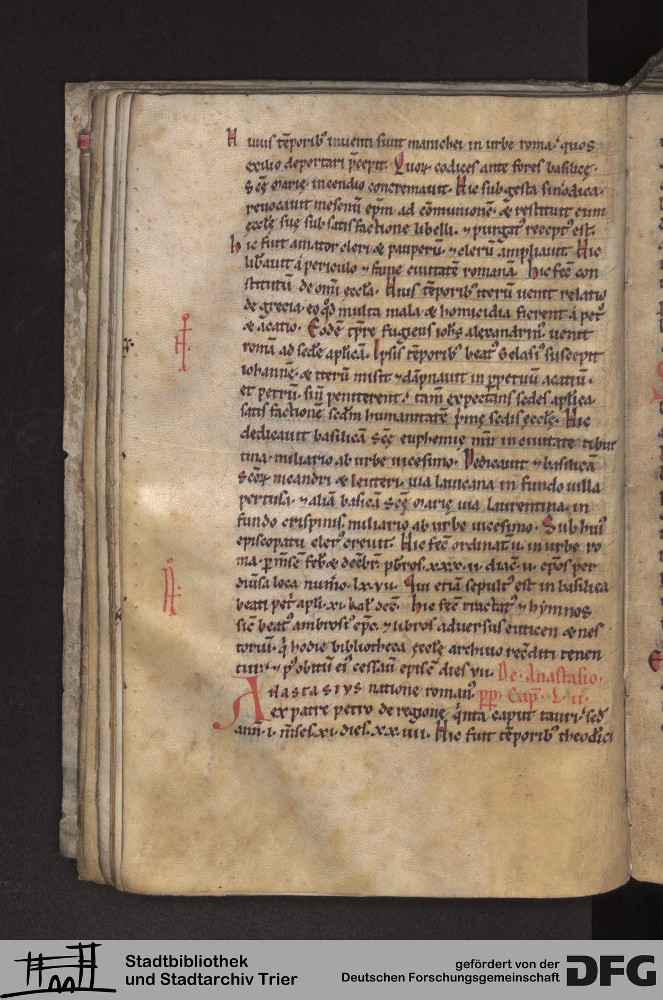 Huius tēporib' inuenti sunt manichei in urbe roma. quos
exilio deportari p̄cepit. Quorꝝ codices ante fores basilicę
Scę Marię incendio concremauit. Hic sub gesta sinodica
reuocauit mesenū ep̄m ad cōmunionē. & restituit eum
ęcclę suę sub satisfactione libelli. ⁊ purgat' recept' est.
hic fuit amator cleri & pauperū. ⁊ clerū ampliauit. Hic
lib̄auit a periculo ⁊ fame ciuitatē romanā. hic fec̄ con
stitutū de omī ęccl̄a. Huius tēporib' iterū uenit relatio
de grecia. eo qd̄ multa mala & homicidia fierent a pet'
& acatio. Eodē tp̄re fugiens ioh̄s alexandrin' uenit
romā ad sedē aplicā. Ipsis tēporib' beat' Gelasi' suscepit
iohannē. & iterū misit ⁊ dāpnauit in ꝑpetuū acatiū.
et petrū. si ñ peniterent. tam̄ expectans sedes aplica
satisfactionē sc̄dm humanitatē p̄mę sedis ęcclę. Hic
dedicauit basilicā scę euphemię in ciuitate tibur
tina. miliario ab urbe uicesimo. Dedicauit ⁊ basilicā
scōrꝝ nicandri & leuteri. uia lauicana in fundo uilla
pertusa. ⁊ aliā basicā scę Marię uia laurentina. in
fundo crispinis. miliario ab urbe uicesimo. Sub hui'
episcopatu cler' creuit. Hic fec̄ ordinat̄. ii. in urbe ro
ma. ꝑ m̄sē feb̄. & decēbr. pb̄ros. xxx. ii. diac̄. ii. ep̄os per
diūsa loca num̄o. lx. vii. Qui etiā sepult' est in basilica
beati pet' apli. xi. kal̄ dec̄. hic fec̄ tractat' ⁊ hymnos
sic̄ beat' ambrosi' ep̄c. ⁊ libros aduersus euticen & nes
toriū. q̄ hodie bibliotheca ęcclę archiuo rec̄diti tenen
tur. ⁊ p' obitū ei' cessaū episc̄ dies vii. De Anastasio.
Anastasius natione roman'. pp. Cap̄. L. ii.
ex patre petro de regione q̄nta caput tauri. sed̄
ann̄. i. m̄ses. xi. dies. xx. iiii. Hic fuit tēporib' theodici
Stadtbibliothek
und Stadtarchiv Trier
gefördert von der
Deutschen Forschungsgemeinschaft
DFG